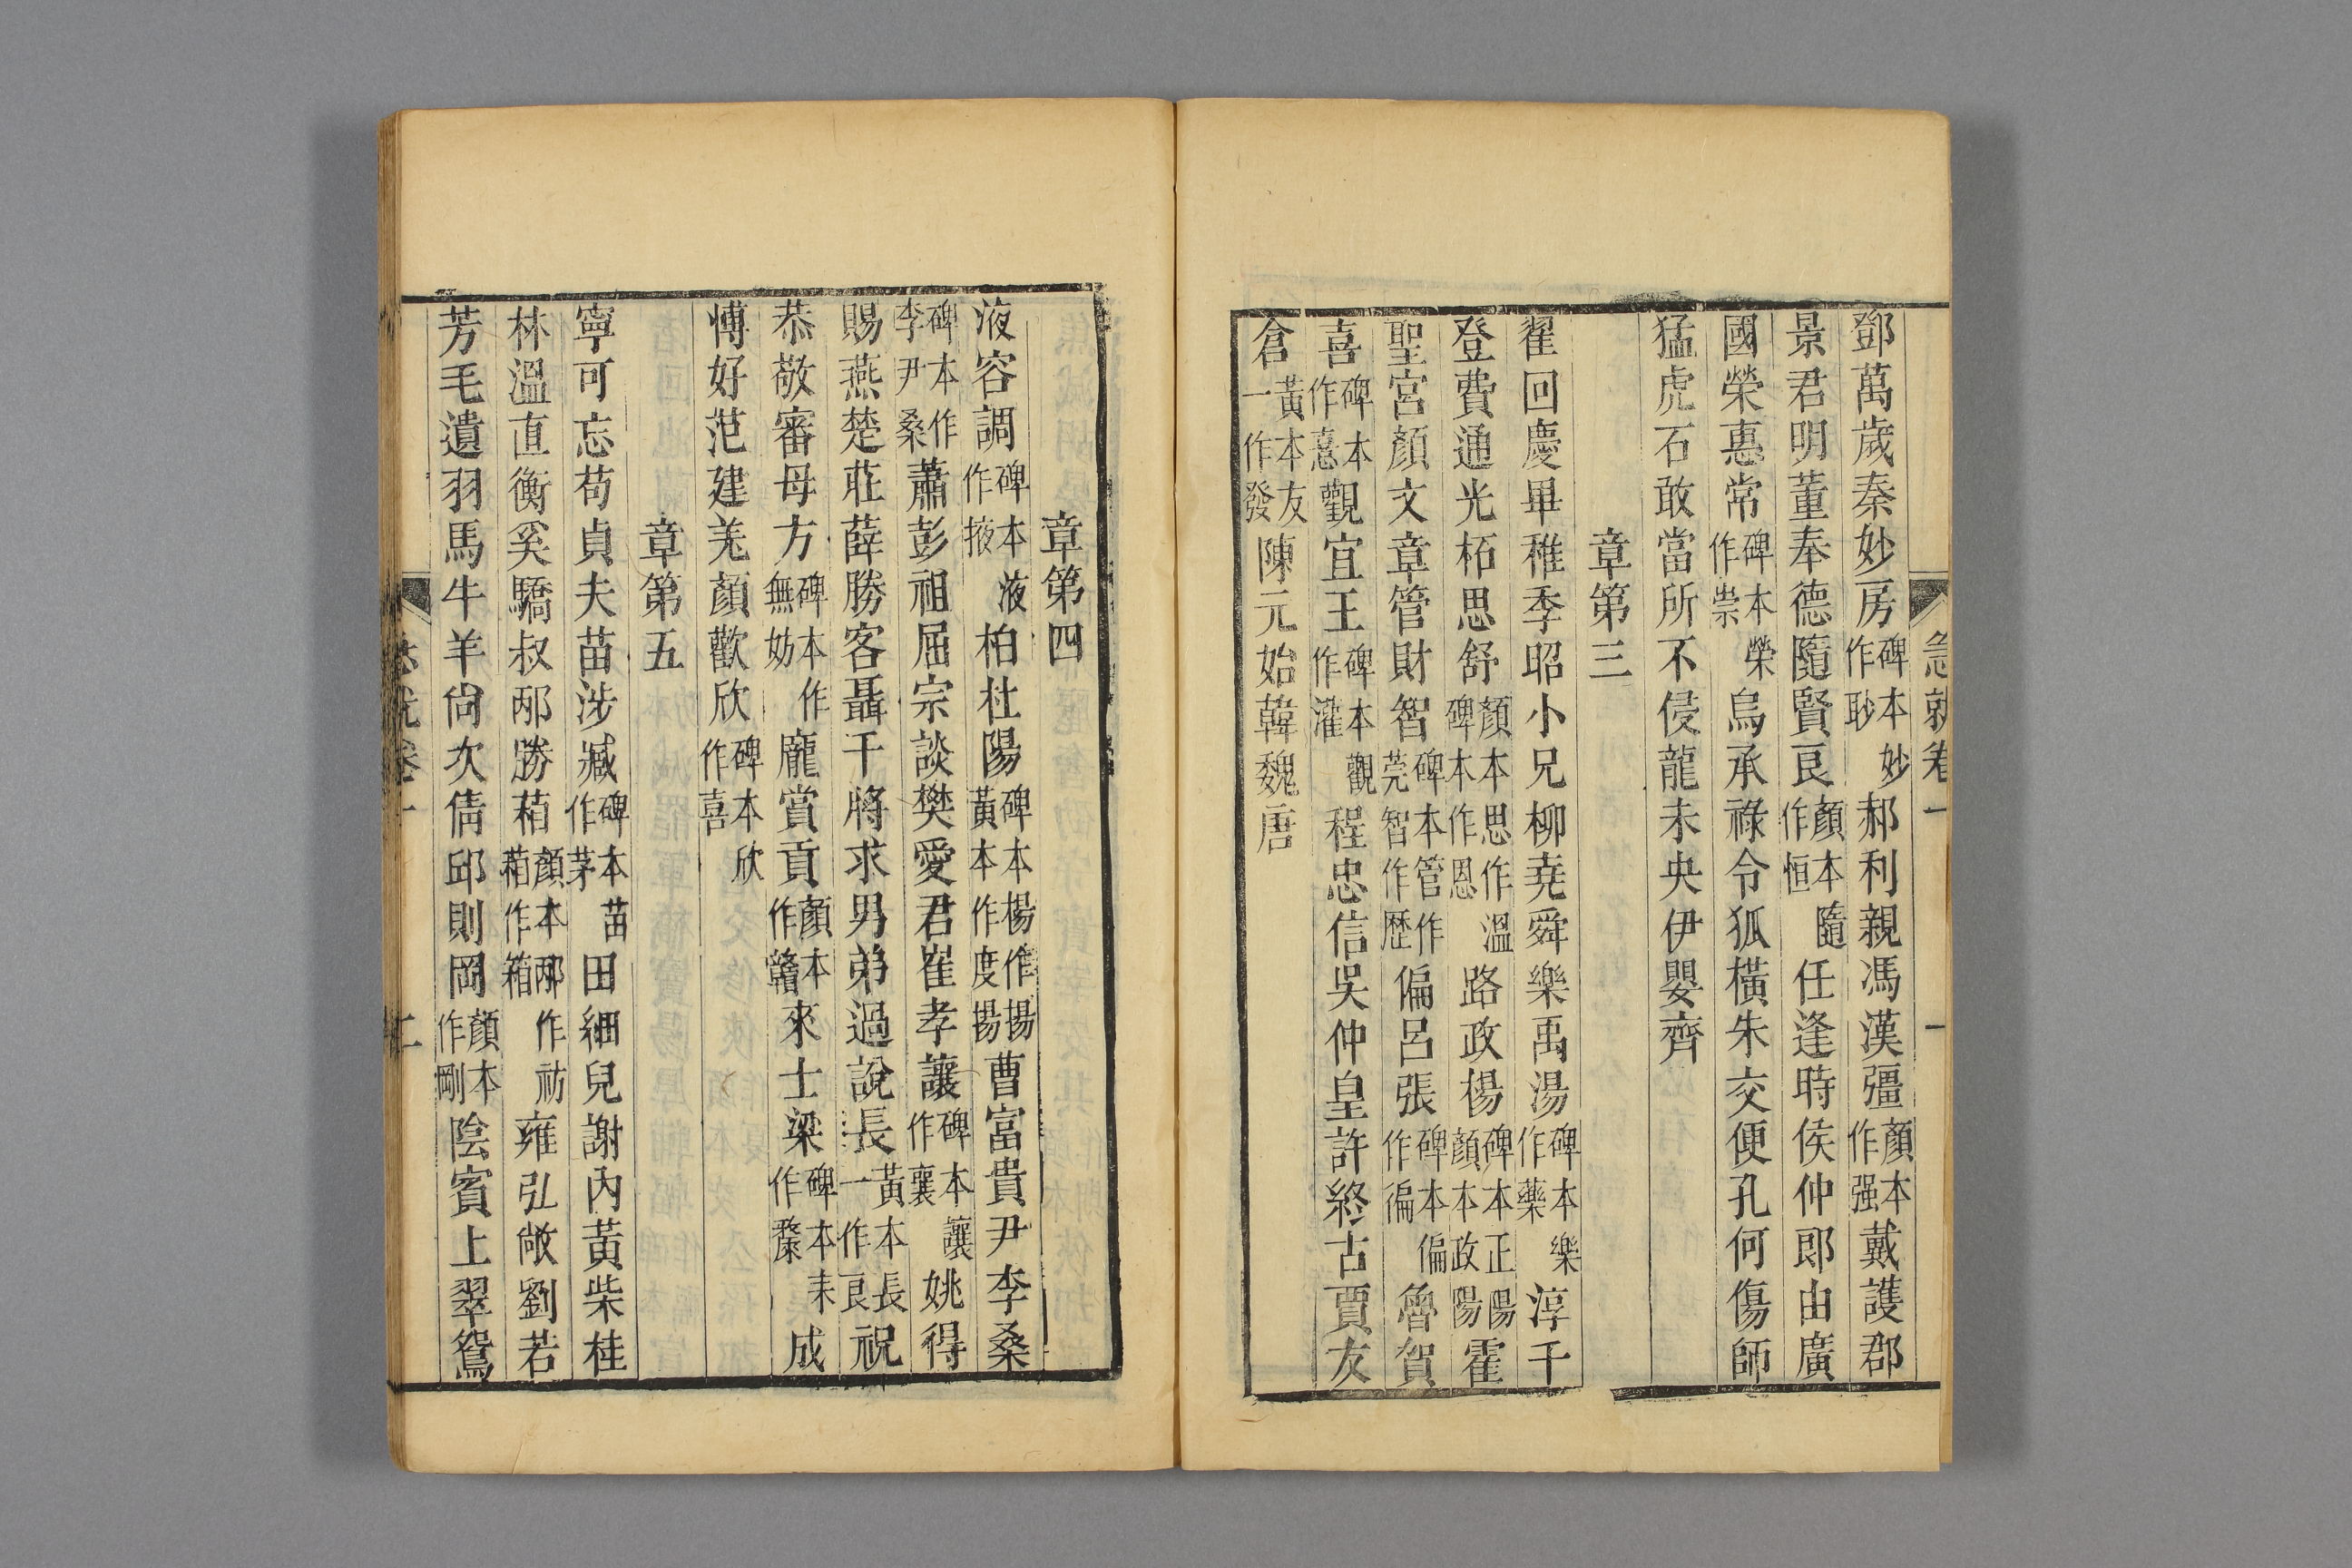 急就卷一　一
鄧萬歲秦妙房碑本妙作郝利親馮漢彊顏本作强戴護郡
景君明董奉德隨賢良顏本隨作恒任逢時侯仲郎由廣
國榮惠常碑本榮作祟烏承祿令狐橫朱交便孔何傷師
猛虎石敢當所不侵龍未央伊嬰齊
章第三
翟回慶畢稚季昭小兄柳堯舜樂禹湯碑本樂作藥淳千
登費通光柘思舒顏本思作溫碑本作恩路政楊碑本正陽顏本政陽霍
聖宮顏文章管財智碑本管作莞智作歷偏呂張碑本偏作徧魯賀
喜碑本作憙觀宜王碑本觀作灌程忠信吳仲皇許終古賈友
倉黃本友一作發陳元始韓魏唐
章第四
液容調碑本液作掖柏杜陽碑本楊作揚黃本作度揚曹富貴尹李桑
碑本作李尹桑蕭彭祖屈宗談樊愛君崔孝讓碑本讓作襄姚得
賜燕楚莊薛勝客聶千將求男弟過說長黃本長一作良祝
恭敬審母方碑本作無妨龐賞貢顏本作贛來士梁碑本耒作成
愽好范建羌顏歡欣碑本欣作喜
章第五
寧可忘苟貞夫苗涉臧碑本苗作茅田細兒謝內黃柴桂
林溫直衡奚驕叔邴勝葙顏本邴作祊葙作箱雍弘敞劉若
芳毛遺羽馬牛羊尙次倩邱則岡顏本作剛陰賓上翠鴛
急就卷一　二